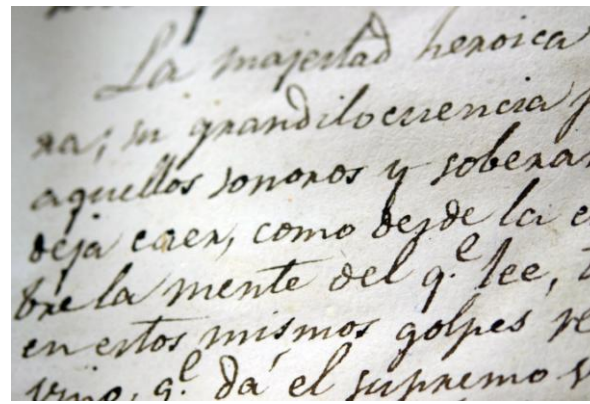 La majestad heroica
ra; su grandilocuencia
aquellos sonoros y soberan
deja caer, como desde la e
bre la mente del q.e lee,
en estos mismos golpes re
q.e dá el supremo